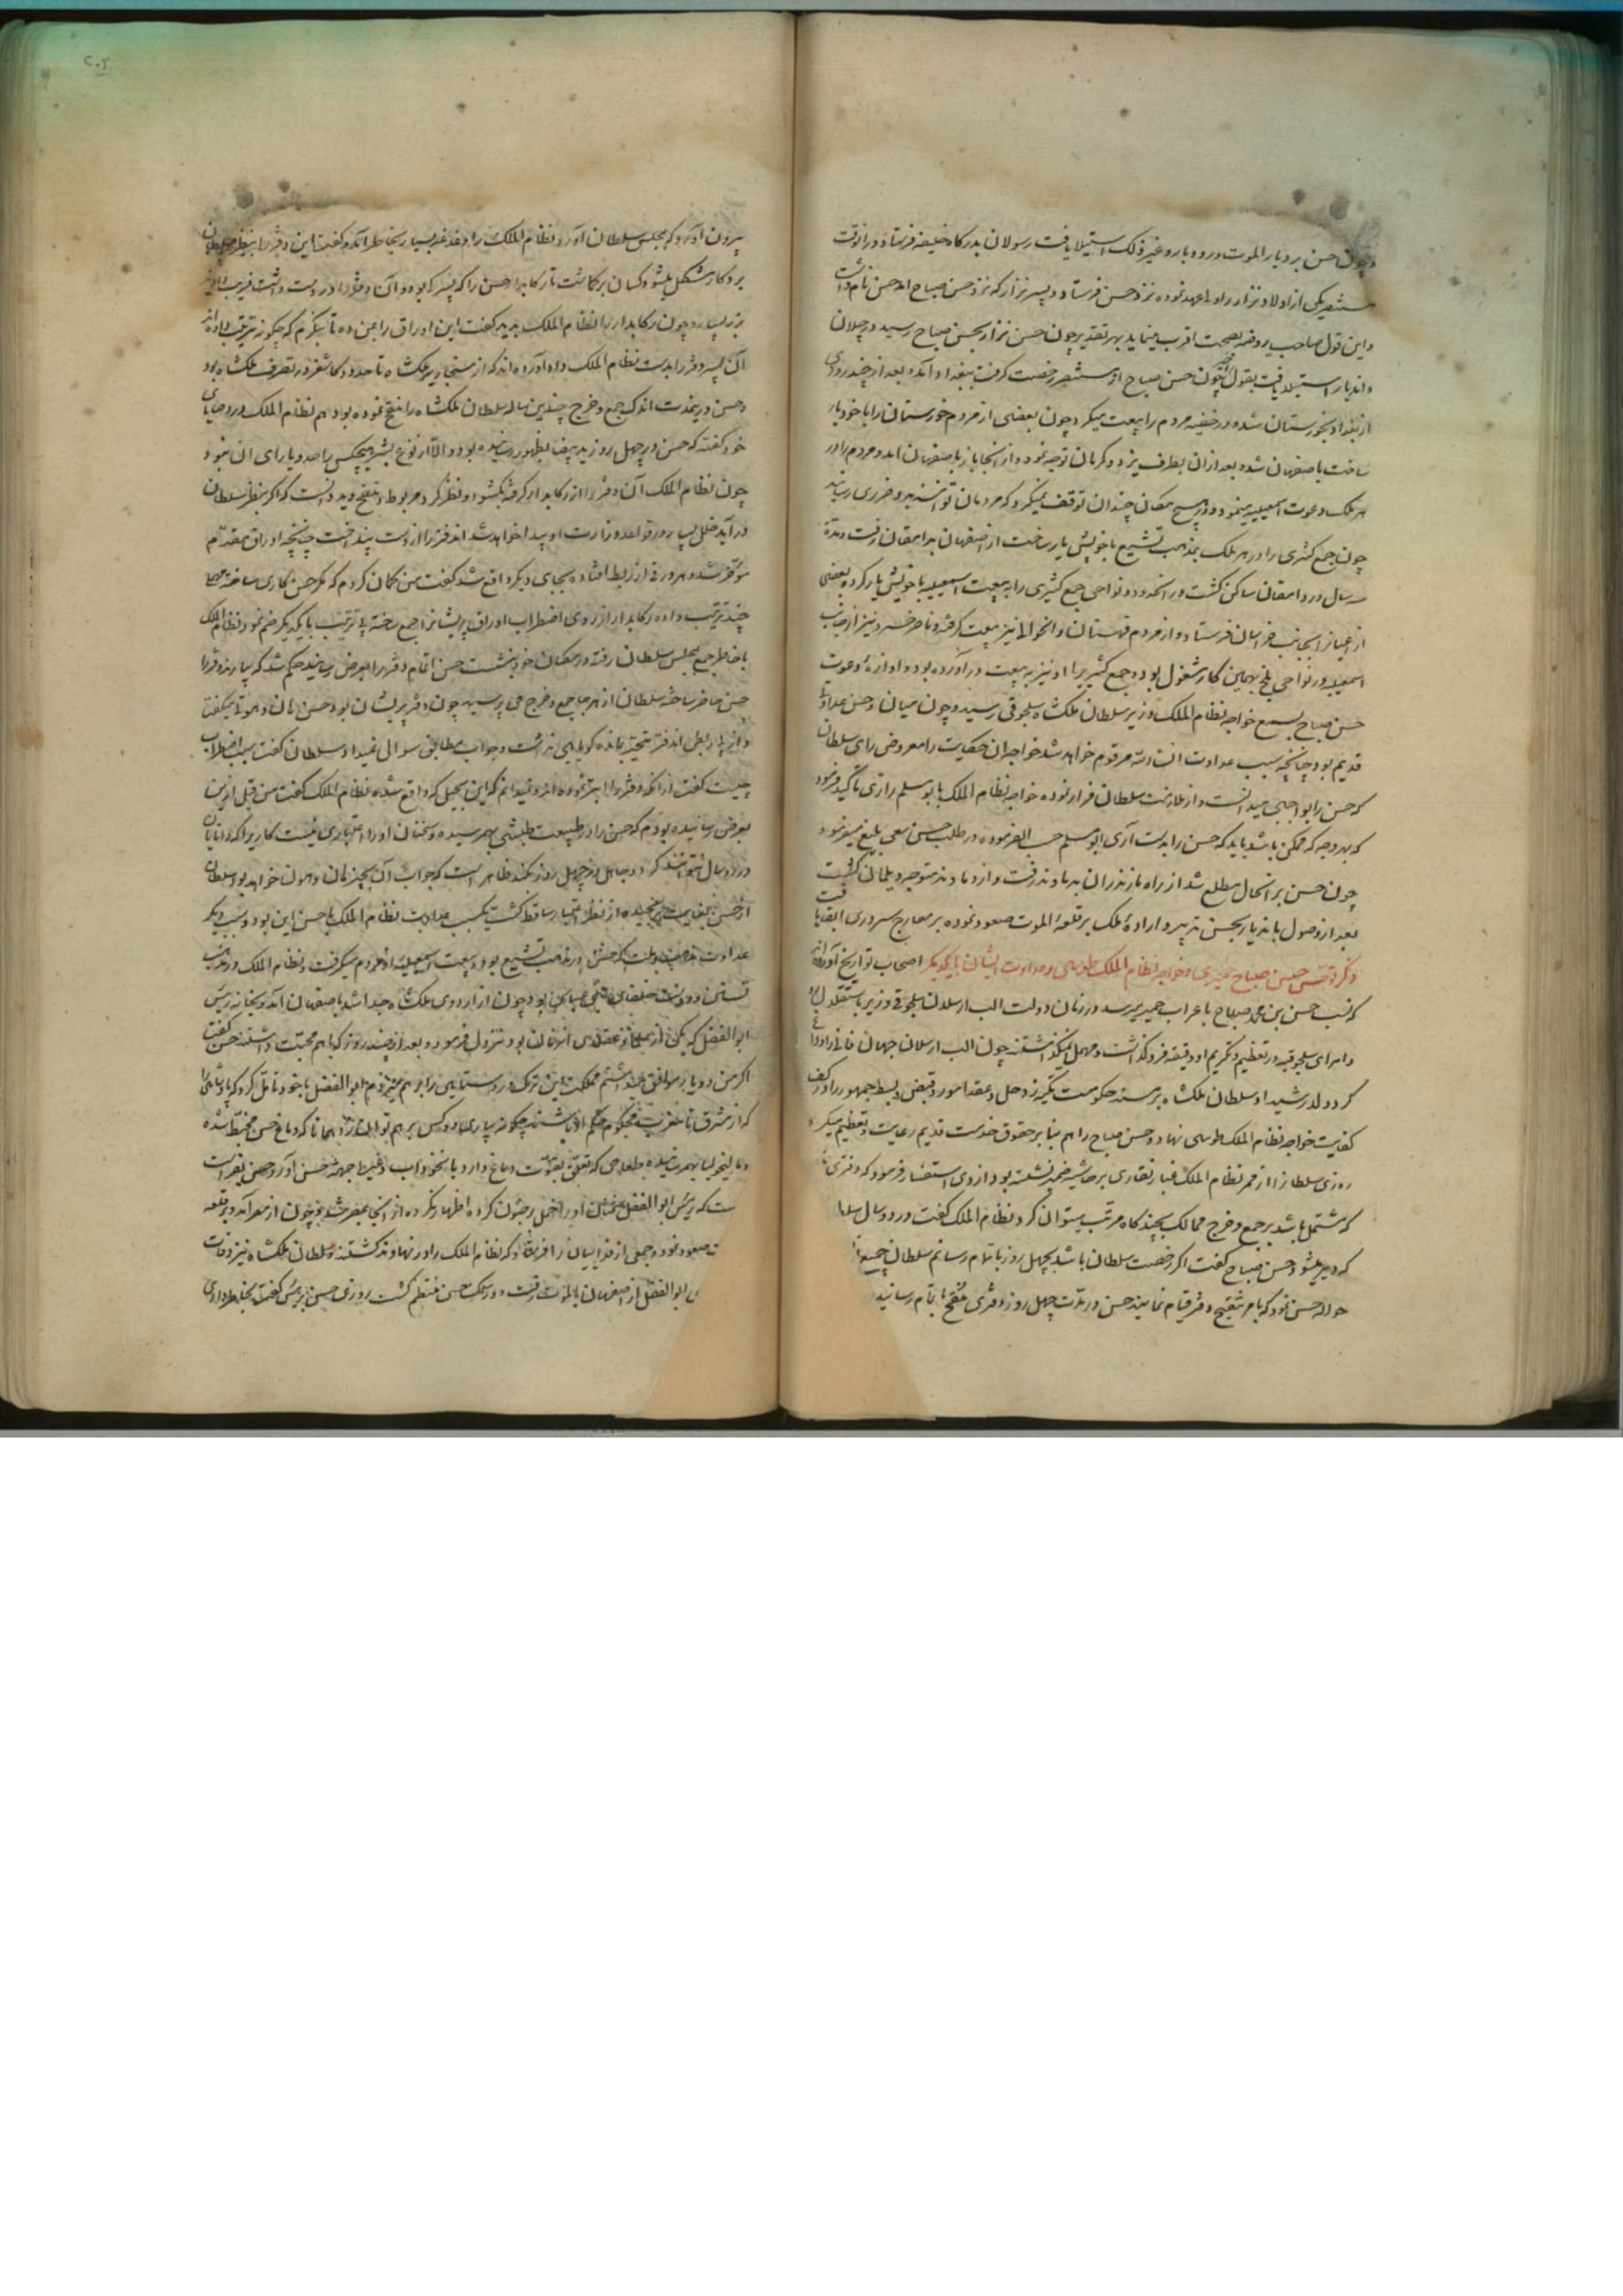 و چون حسن بر دیار الموت و رودبار و غیر ذلک استیلا یافت رسولان بدرکاه خلیفه فرستاد و در انوقت
مستنصر یکی از اولاد نزار را ولیعهد نموده نزد حسن فرستاد و پسر نزار که نزد حسن صباح امد حسن نام داشت
و این قول صاحب روضه بصحت اقرب مینماید بهر تقدیر چون حسن نزار بحسن صباح رسید در جیلان
و اندیار استیلا یافت بقول چون حسن صباح از مستنصر رخصت کرفت ببغداد آمد و بعد از چند روزی
از بغداد بخورستان شده در خفیه مردم را بیعت میکرد چون بعضی از مردم خورستان را با خود یار
ساخت باصفهان شد و بعد ازان بطرف یزد و کرمان توجه نمود و از انجا باز باصفهان امد و مردم را در
هر ملک دعوت اسمعیلیه مینمود و در هیچ مکان چندان توقف نمیکرد که مردمان توانستند برو ضرری رسانید
چون جمع کثیری را در هر ملک بمذهب تشیع با خویش یار ساخت از اصفهان بدامغان رفت و مدة
سه سال در دامغان ساکن کشت و در انحدود و نواحی جمع کثیری را به بیعت اسمعیلیه با خویش یار کرده بعضی
از اعیانرا بجانب خراسان فرستاد و از مردم قهستان و انحوالی نیز بیعت کرفته و ناصر خسرو نیز از جانب
اسمعیلیه در نواحی بلخ بهمین کار مشغول بود و جمع کثیریرا او نیز به بیعت در آورده بود و اوازهٔ دعوت
حسن صباح بسمع خواجه نظام الملک وزیر سلطان ملکشاه سلجوقی رسید و چون میان او و حسن عداوت
قدیم بود چنانچه سبب عداوت انشاءالله مرقوم خواهد شد خواجه ان حکایت را معروض رای سلطان
که حسن را بواجبی میدانست و از ملازمت سلطان فرار نموده خواجه نظام الملک بابو مسلم رازی تاکید فرمود
که بهر وجه که ممکن باشد باید که حسن را بدست آری ابو مسلم حسب الفرموده در طلب حسن سعی بلیغ مینمود
چون حسن بر انحال مطلع شد از راه مازندران بدماوند رفت و از دماوند متوجه دیلمان کشت
بعد از وصول باندیار بحسن تدبیر و ارادهٔ ملک بر قلعهٔ الموت صعود نموده بر معارج سروری ارتقا یافت
ذکر وحشت حسن صباح حمیری و خواجه نظام الملک طوسی و عداوت ایشان با یکدیکر اصحاب تواریخ آورده اند
که نسب حسن بن محمد صباح باعراب حمیر میرسد و در زمان دولت الب ارسلان سلجوقی وزیر باستقلال بود
و امرای سلجوقیه در تعظیم و تکریم او دقیقه فرو نکذاشت و مهمل نمیکذاشتند چون الب ارسلان جهان فانی را وداع
کرد ولد رشید او سلطان ملکشاه بر مسند حکومت تکیه زد حل و عقد امور و قبض و بسط جمهور را در کف
کفایت خواجه نظام الملک طوسی نهاد و حسن صباح را هم بنابر حقوق خدمت قدیم رعایت و تعظیم میکرد
روزی سلطانرا از ممر نظام الملک غبار نقاری بر حاشیه ضمیر نشسته بود از وی استفسار فرمود که دفتری
که مشتمل باشد بر جمع و خرج ممالک بچند کاه مرتب میتوان کرد نظام الملک کفت در دو سال سلطان
که دیر میشود حسن صباح کفت اکر رخصت سلطان باشد بچهل روز باتمام رسانم سلطان جمیع
حواله حسن نمود که بامر تنقیح دفتر قیام نمایند حسن در مدت چهل روز دفتری منقح باتمام رسانید
۲۰۲
بیرون آورد که بمجلس سلطان آورد نظام الملک را دغدغه بسیار بخاطر آمد و کفت این دفتر را بنظر سلطان
برد کار مشکل میشود کسان برکماشت تا رکابدار حسن را که پسرکی بود و آن دفتر را در دست داشت فریب دادند
نزد پسر رود چون رکابدار را نظام الملک بدید کفت این اوراق را بمن ده تا بنکرم که چکونه ترتیب داده اند
آن پسر دفتر را بدست نظام الملک داد آورده اند که از سنجاب دیر ملکشاه تا حدود کاشغر در تصرف ملکشاه بود
و حسن در مدت اندک جمع و خرج چندین ساله سلطان ملکشاه را منقح نموده بود هم نظام الملک در وصایای
خود کفته که حسن در چهل روز ید بیضا بظهور رسانیده بود و الا از نوع بشر هیچکس را حد و یارای ان نبود
چون نظام الملک آن دفتر را از رکابدار کرفته بکشود و نظر کرد مربوط و منقح دید دانست که اکر بنظر سلطان
در آید خلل بسیار در قواعد وزارت او پیدا خواهد شد اند فتر را از دست بینداخت چنانچه اوراق مقدم
موخر شد و هر ورقی از ربط افتاده بجای دیکر واقع شد کفت من کمان کردم که مکر حسن کاری ساخته
چند ترتیب داده رکابدار از روی اضطراب اوراق پریشانرا جمع ساخته بی ترتیب با یکدیکر ضم نمود نظام الملک
با خاطر جمع بمجلس سلطان رفته در مکان خود بنشست حسن اتمام دفتر را بعرض رسانید حکم شد که بیارند دفتر را
حسن حاضر ساخته سلطان از هر جا جمع و خرج می پرسید چون دفتر پریشان بود حسن هان و هون میکفت
و از بی ربطی اندفتر متحیر بمانده کویا هیچ نداشت و جواب مطابق سوال نمیداد سلطان کفت سبب اضطراب
چیست کفت از انکه دفتر را ابتر نموده اند و نمیدانم که این تخجیل که واقع شده نظام الملک کفت من قبل ازین
بعرض رسانیده بودم که حسن را در طبیعت طیشی بهم رسیده و سخنان او را اعتباری نیست کاریرا که دانایان
در دو سال نتوانند کرد جاهل در چهل روز کند ظاهر است که جواب آن بجز هان و هون نخواهد بود سلطان
از حسن بغایت رنجیده از نظر اعتبار ساقط کشت سبب عداوت نظام الملک با حسن این بود و سبب دیکر
عداوت مذهب و ملت که حسن در مذهب تشیع بود و بیعت اسمعیلیه از مردم میکرفت و نظام الملک در مذهب
تسنن و دوست خلفای بنی عباس بود چون از اردوی ملکشاه جدا شد باصفهان آمد و بخانه رئیس
ابو الفضل که یکی از علما و عقلای انزمان بود نزول فرمود و بعد از چند روز که باهم صحبت داشتند حسن کفت
اکر من دو یار موافق میداشتم مملکت این ترک و روستایی را برهم میزدم ابو الفضل با خود تامل کرد که پادشاهی
که از مشرق تا مغرب محکوم حکم او باشند چکونه بیاری دو کس برهم تواند زد همانا که دماغ حسن مختبط شده
و مالیخولیا بهم رسیده طعامی که تعلق بقوت دماغ دارد با نخود اب و غیره جهت حسن آورد حسن بفراست
ست که رئیس ابو الفضل او را حمل بر جنون کرده اظهار نکرده از انجا بمصر شد و چون از مصر آمد و بر قلعه
ت صعود نمود و جمعی از فداییان را فرستاد که نظام الملک را در نهاوند کشتند و سلطان ملکشاه نیز وفات
ابو الفضل از اصفهان بالموت رفت و در سلک حسن منتظم کشت روزی حسن برئیس کفت بخاطر داری